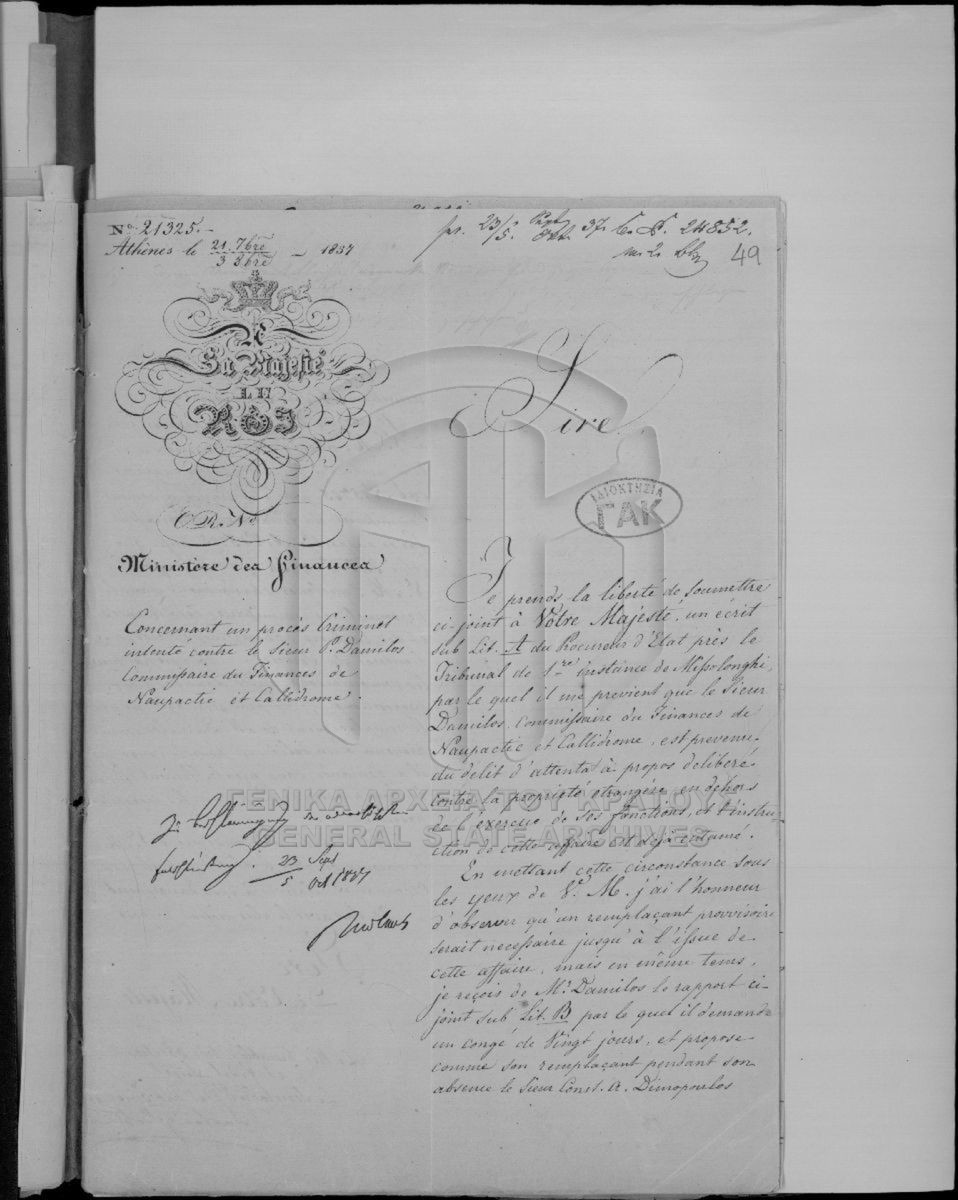 Nº 21325.
Athènes le 21 7bre / 3 8bre 1837
pr. 23/5. Sept Okt. 37. C. S. 24852.
49
A
Sa Majesté
LE
ROI
Sire
ΙΔΙΟΚΤΗΣΙΑ
ΓΑΚ
Ministère des Finances
Concernant un procès Criminel
intenté contre le Sieur P. Damilos
Commissaire du Finances de
Naupactie et Callidrome.
Je prends la liberté de soumettre
ci-joint à Votre Majesté, un écrit
sub Lit. A du Procureur d'Etat près le
Tribunal de 1re instance de Missolonghi,
par le quel il me previent que le Sieur
Damilos, Commissaire du Finances de
Naupactie et Callidrome, est prevenu
du delit d'attenta à propos deliberé
contre la proprieté etrangère en dehors
de l'exercise de ses fonctions, et l'instru-
ction de cette affaire est déjà entamé.
En mettant cette circonstance sous
les yeux de V. M. j'ai l'honneur
d'observer qu'un remplaçant provvisoire
serait necessaire jusqu'à l'issue de
cette affaire, mais en même tems,
je reçois de Mr Damilos le rapport ci-
joint sub Lit. B par le quel il demande
un congé de Vingt jours, et propose
comme son remplaçant pendant son
absence le Sieur Const. A. Dimopoulos
23 Sept
5 Oct 1837
ΓΕΝΙΚΑ ΑΡΧΕΙΑ ΤΟΥ ΚΡΑΤΟΥΣ
GENERAL STATE ARCHIVES